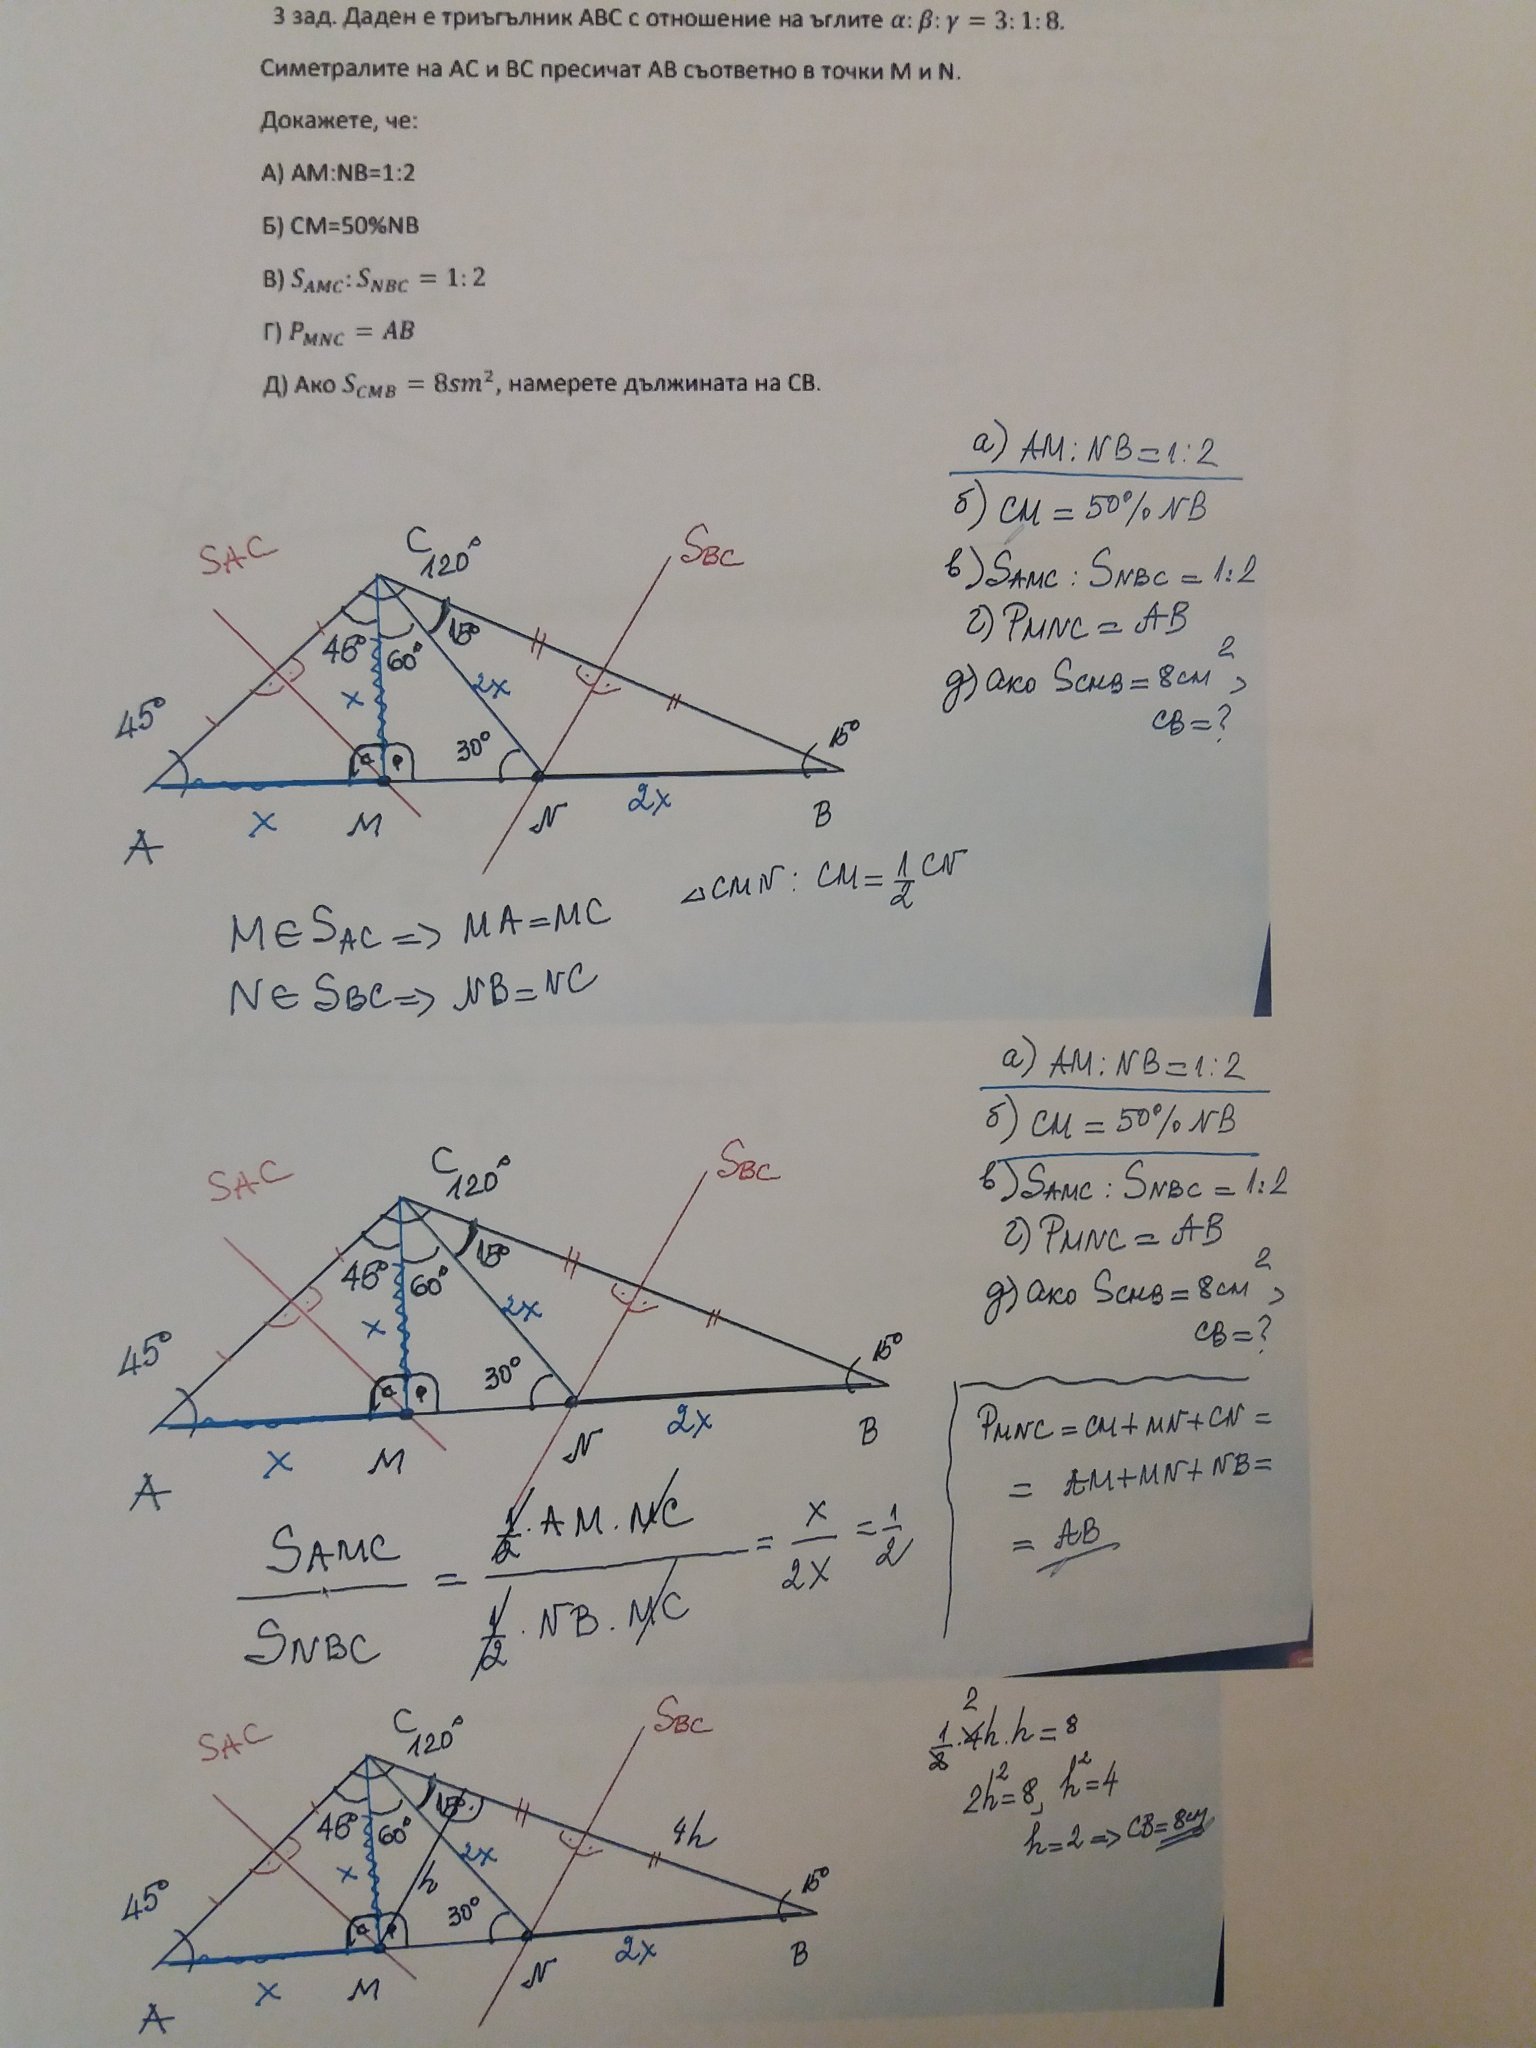 3 зад. Даден е триъгълник ABC с отношение на ъглите α: β: γ = 3: 1: 8.
Симетралите на AC и BC пресичат AB съответно в точки M и N.
Докажете, че:
А) AM:NB=1:2
Б) CM=50%NB
В) S_AMC: S_NBC = 1: 2
Г) P_MNC = AB
Д) Ако S_CMB = 8sm², намерете дължината на CB.
а) AM:NB=1:2
б) CM = 50% NB
в) S_AMC : S_NBC = 1:2
г) P_MNC = AB
д) ако S_CMB = 8 cm²,
CB=?
S_AC
C
120°
S_BC
45°
60°
15°
x
2x
45°
30°
15°
x
M
N
2x
B
A
△CMN: CM = 1/2 CN
M ∈ S_AC => MA=MC
N ∈ S_BC => NB=NC
а) AM:NB=1:2
б) CM = 50% NB
в) S_AMC : S_NBC = 1:2
г) P_MNC = AB
д) ако S_CMB = 8 cm²,
CB=?
S_AC
C
120°
S_BC
45°
60°
15°
x
2x
45°
30°
15°
x
M
N
2x
B
A
P_MNC = CM + MN + CN =
= AM + MN + NB =
= AB
S_AMC / S_NBC = (1/2 . AM . MC) / (1/2 . NB . MC) = x / 2x = 1/2
S_AC
C
120°
S_BC
45°
60°
15°
x
2x
h
4h
45°
30°
15°
x
M
N
2x
B
A
2
1/2 . 4h . h = 8
2h² = 8, h² = 4
h = 2 => CB = 8 cm